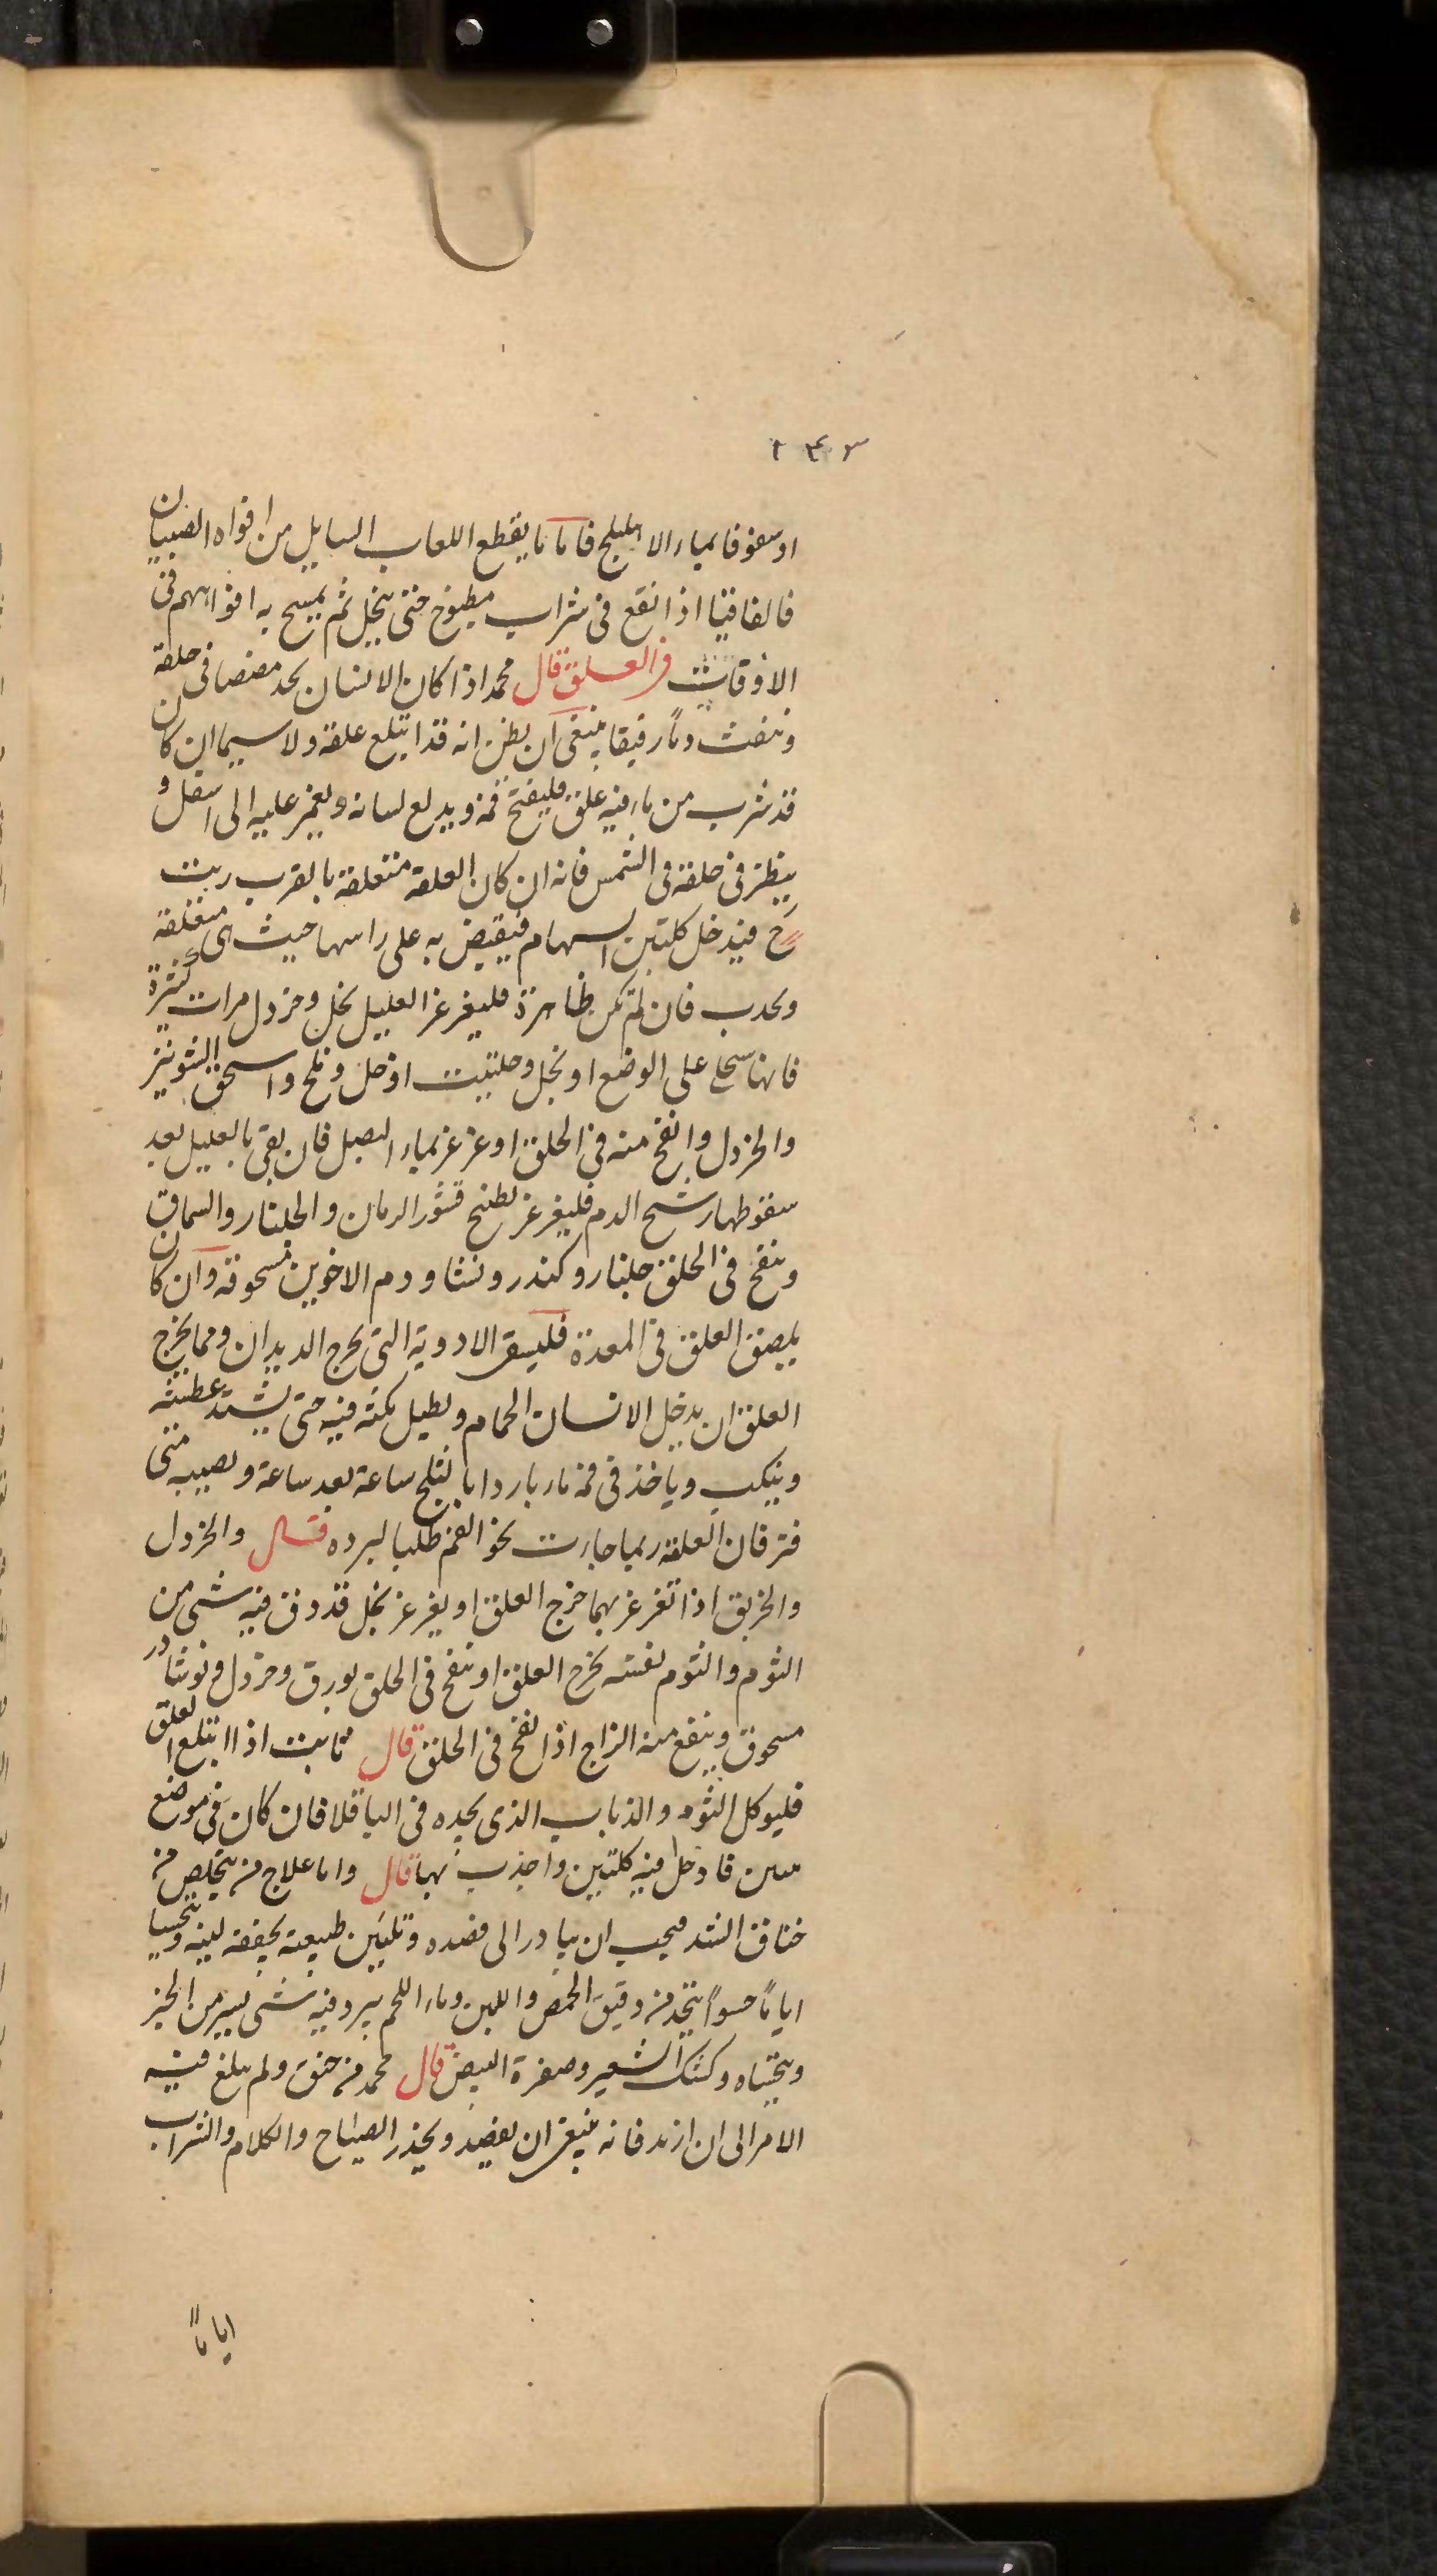 ۲۴۳
او سفوفا بماء الاهليلج فاما ما يقطع اللعاب السايل من افواه الصبيان
فالفاقيا اذا نقع فى شراب مطبوخ حتى ينحل ثم يمسح به افواههم فى
الاوقات فى العلق قال محمد اذا كان الانسان يجد مغصا فى حلقه
وينفث دماً رقيقا ينبغى ان يظن انه قد ابتلع علقة ولا سيما ان كان
قد شرب من ماء فيه علق فليفتح فمه ويدلع لسانه ويغمز عليه الى اسفل و
ينظر فى حلقه فى الشمس فانه ان كان العلقة متعلقة بالقرب ريت
ح فيدخل كلبتين السهام فيقبض به على راسها حيث هى متعلقة
ويجذب فان لم تكن ظاهرة فليغرغر العليل بخل وخردل مرات كثيرة
فانها على الوضع او بخل وحلتيت او خل وملح واسحق الشونيز
والخردل وانفخ منه فى الحلق او غرغر بماء البصل فان بقى بالعليل بعد
سقوطها رشح الدم فليغرغر بطبخ قشور الرمان والجلنار والسماق
وينفخ فى الحلق جلنار وكندر ونشا ودم الاخوين مسحوقة وان كان
يلصق العلق فى المعدة فليسق الادوية التى تخرج الديدان ومما يخرج
العلق ان يدخل الانسان الحمام ويطيل مكثه فيه حتى يشتد عطشه
وينكب وياخذ فى فمه ماء باردا بالثلج ساعة بعد ساعة ويصببه متى
فتر فان العلقة ربما جاءت نحو الفم طلبا لبرده قال والخردل
والخربق اذا تغرغر بهما خرج العلق او يغرغر بخل قد دق فيه شى من
الثوم والثوم نفسه يخرج العلق او ينفخ فى الحلق بورق وخردل ونوشادر
مسحوق وينفع منه الزاج اذا نفخ فى الحلق قال ثابت اذا ابتلع العلق
فليوكل الثوم والذباب الذى يجده فى الباقلا فان كان فى موضع
فادخل فيه كلبتين واجذب بها قال واما علاج من يتخلص من
خناق الشد فيجب ان يبادر الى فصده وتليين طبيعته بحقنة لينة ويحسيا
اياماً حسواً يتخذ من دقيق الحمص واللبن وماء اللحم يبرد فيه شى يسير من الخبز
ويجتباه وكشك الشعير وصفرة البيض قال محمد من خنق ولم يبلغ فيه
الامر الى ان ازبد فانه ينبغى ان يفصد ويحذر الصياح والكلام والشراب
اياماً